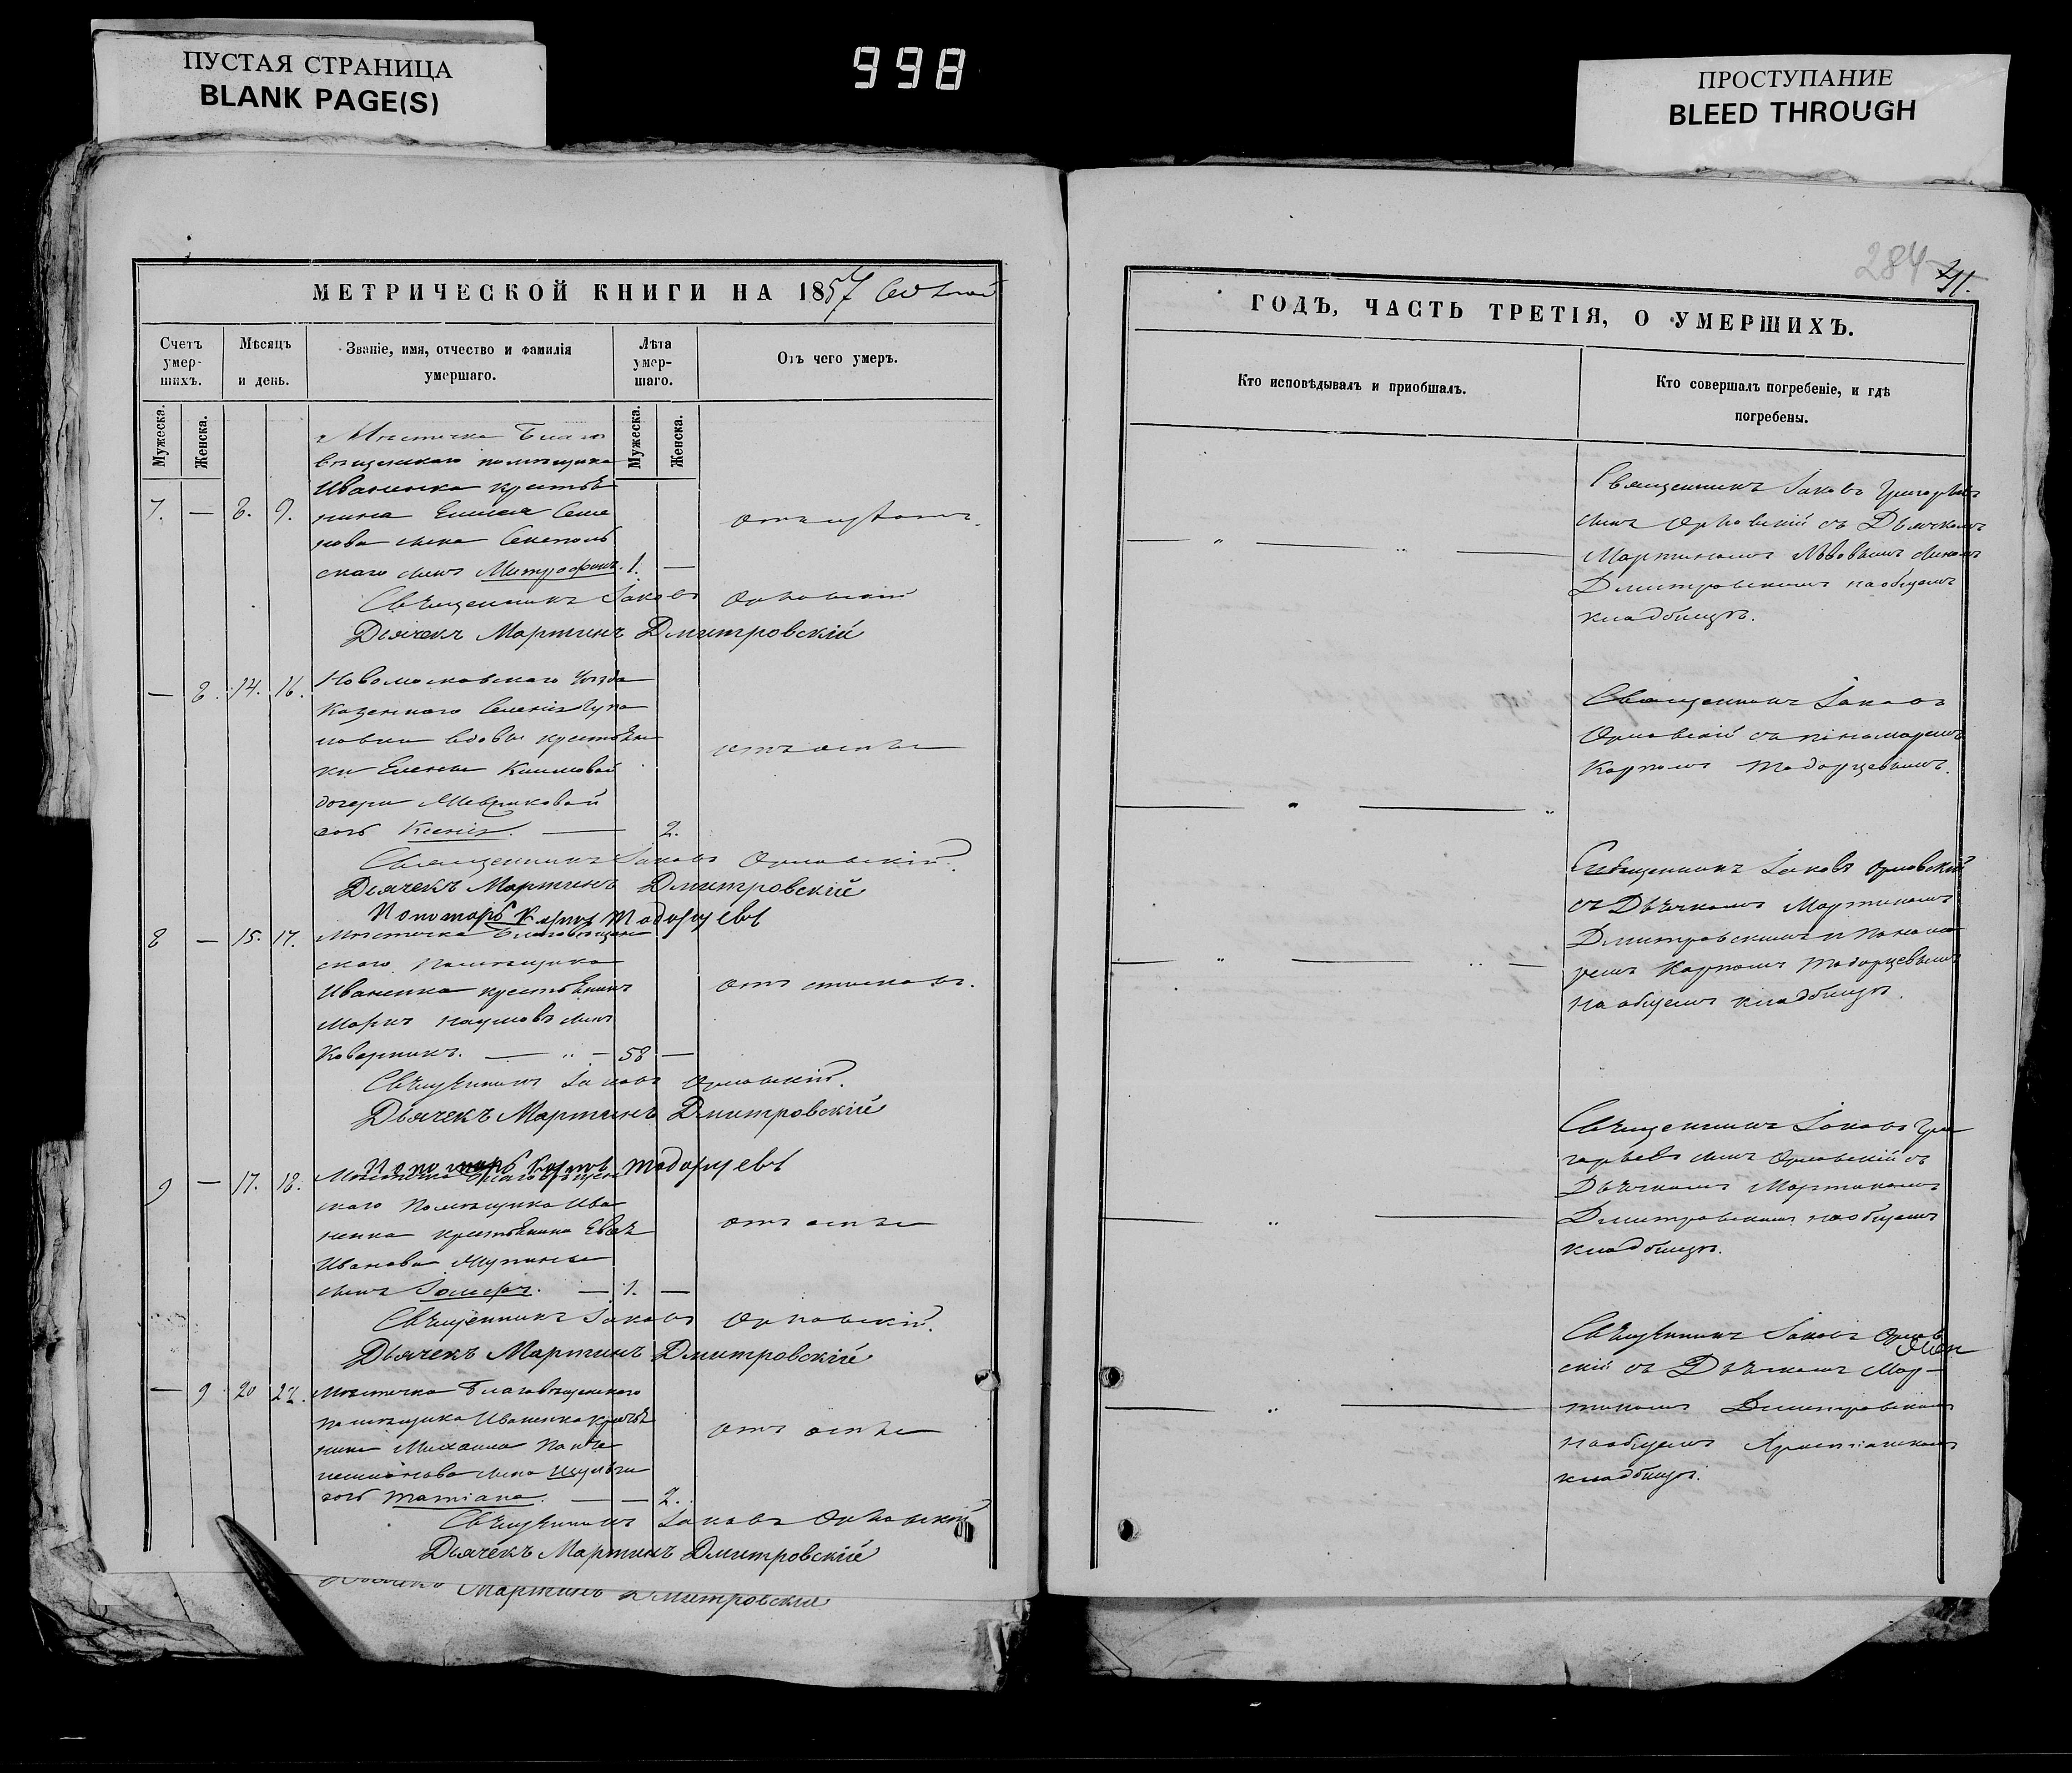 ПУСТАЯ СТРАНИЦА
BLANK PAGE(S)
998
ПРОСТУПАНИЕ
BLEED THROUGH
МЕТРИЧЕСКОЙ КНИГИ НА 1857
Счетъ умер-шихъ.
Мѣсяцъ и день.
Званіе, имя, отчество и фамилія умершаго.
Лѣта умер-шаго.
Отъ чего умеръ.
Мужеска.
Женска.
Мужеска.
Женска.
Мѣстечка Благо
вѣщенскаго помѣщика
Иваненка крестья
7. — 8. 9. нина Елисея Семе
нова сына
скаго сынъ Митрофанъ. 1. —
Священникъ Іаковъ Орловскій
Дьячекъ Мартинъ Дмитровскій
— 8. 14. 16. Новомосковскаго уѣзда
Казеннаго Селенія
вдовы крестьян
ки Елены Климовой отъ оспы
дочери
дочь Ксенія. — 2.
Священникъ Іаковъ Орловскій.
Дьячекъ Мартинъ Дмитровскій
Пономарь Карпъ Тодорцевъ
8 — 15. 17. Мѣстечка Благовѣщен
скаго помѣщика
Иваненка крестьянинъ
Маркъ Наумовъ сынъ
— 58 —
Священникъ Іаковъ Орловскій.
Дьячекъ Мартинъ Дмитровскій
Пономарь Карпъ Тодорцевъ
9 — 17. 18. Мѣстечка Благовѣщен
скаго помѣщика Ива
ненка крестьянина отъ оспы
Иванова
сынъ Іосифъ. — 1. —
Священникъ Іаковъ Орловскій.
Дьячекъ Мартинъ Дмитровскій
— 9 20 22. Мѣстечка Благовѣщенскаго
помѣщика Иваненка крестья
нина Михаила Панте отъ оспы
леимонова сына
дочь Татіана. — — 2.
Священникъ Іаковъ Орловскій
Дьячекъ Мартинъ Дмитровскій
Мартинъ Дмитровскій
284
ГОДЪ, ЧАСТЬ ТРЕТІЯ, О УМЕРШИХЪ.
Кто исповѣдывалъ и пріобщалъ.
Кто совершалъ погребеніе, и гдѣ погребены.
Священникъ Іаковъ Григорьевъ
сынъ Орловскій съ Дьячкомъ
Мартиномъ Львовымъ сыномъ
Дмитровскимъ на общемъ
кладбищѣ.
Священникъ Іаковъ
Орловскій съ пономаремъ
Карпомъ Тодорцевымъ.
Священникъ Іаковъ Орловскій
съ Дьячкомъ Мартиномъ
Дмитровскимъ и Понома
ремъ Карпомъ Тодорцевымъ
на общемъ кладбищѣ.
Священникъ Іаковъ Гри
горьевъ сынъ Орловскій съ
Дьячкомъ Мартиномъ
Дмитровскимъ на общемъ
кладбищѣ.
Священникъ Іаковъ Орлов
скій съ Дьячкомъ Мар-
тиномъ Дмитровскимъ
на общемъ Христіанскомъ
кладбищѣ.